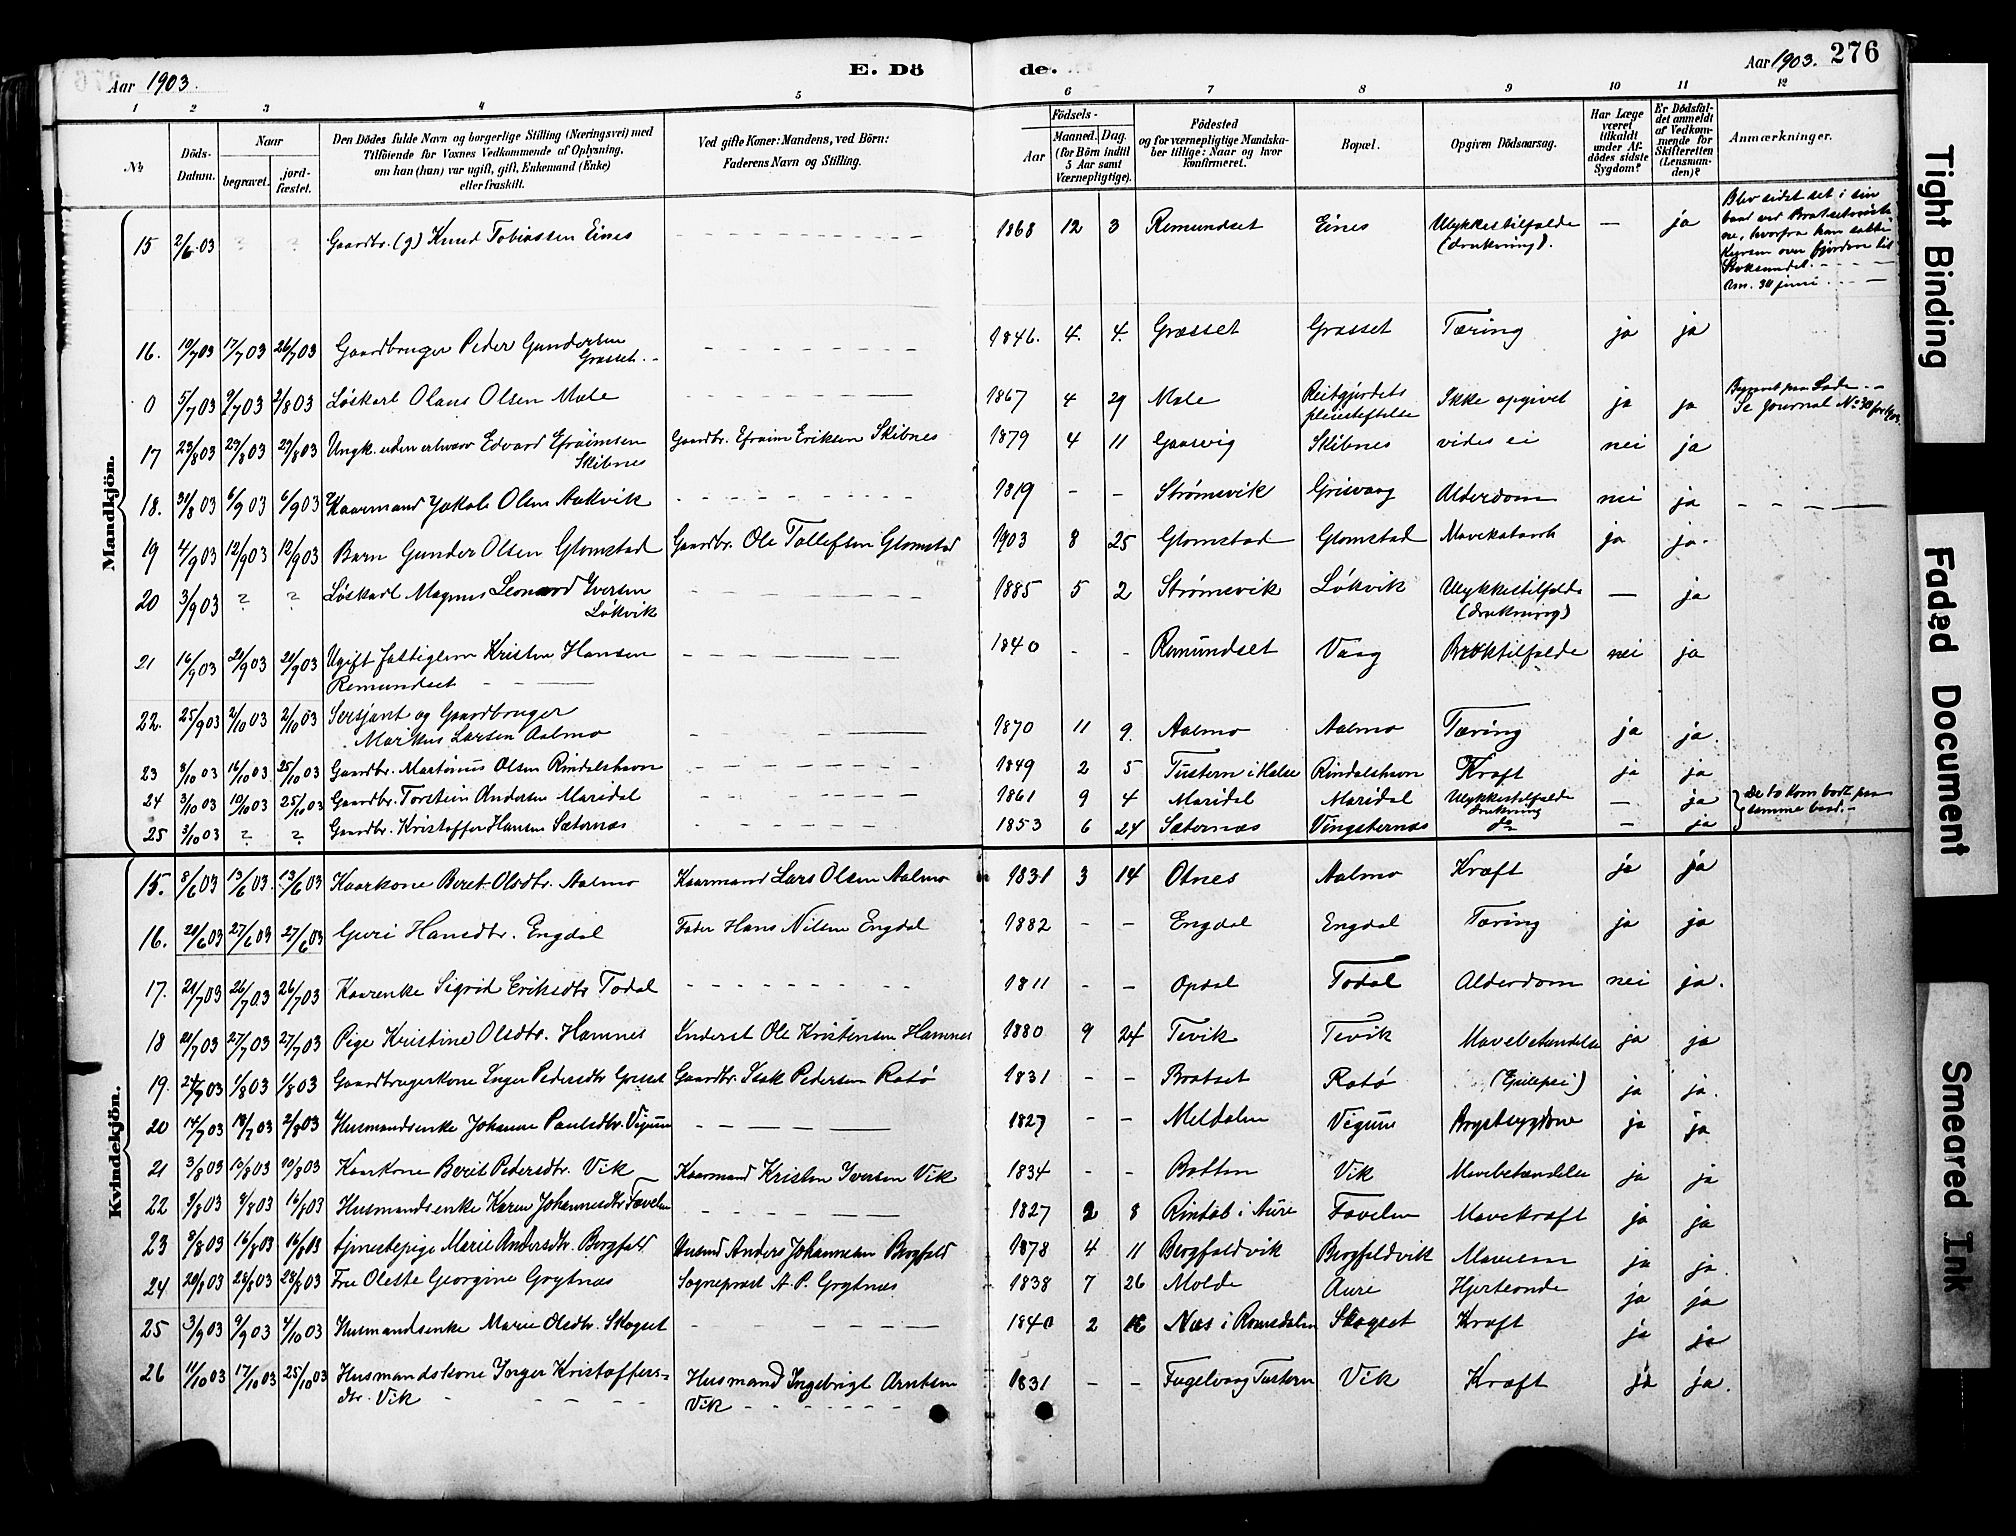 Aar 1903.
E. Dö
de.
Aar 1903. 276
1 2 3 4 5 6 7 8 9 10 11 12
№
Döds-Datum.
Naar
begravet.
jord-fæstet.
Den Dödes fulde Navn og borgerlige Stilling (Næringsvei) med
Tilföiende for Voxnes Vedkommende af Oplysning,
om han (hun) var ugift, gift, Enkemand (Enke)
eller fraskilt.
Ved gifte Koner: Mandens, ved Börn:
Faderens Navn og Stilling.
Födsels-
Aar
Maaned. Dag.
(for Börn indtil
5 Aar samt
Værnepligtige).
Födested
og for værnepligtige Mandska-
ber tillige: Naar og hvor
konfirmeret.
Bopæl.
Opgiven Dödsaarsag.
Har Læge
været
tilkaldt
under Af-
dödes sidste
Sygdom?
Er Dödsfal-
det anmeldt
af Vedkom-
mende for
Skifteretten
(Lensman-
den)?
Anmærkninger.
Mandkjön.
15 2/6 03 ? ? Gaardbr. (g) Knud Tobiassen Eines 1868 12 3 Remundset Eines Ulykkestilfælde (drukning). — ja
Blev sidst set i sin
baad ved
hvorfra han satte
Kursen over fjorden til
Stoksundet.
Anm. 30 juni
16. 10/7 03 17/7 03 26/7 03 Gaardbruger Peder Gundersen Græsset. 1846. 4. 4. Græsset Græsset Tæring ja ja
0 5/7 03 9/7 03 2/8 03 Løskarl Olaus Olsen Mæle 1867 4 29 Mæle Reitgjerdets pleiestiftelse Ikke opgivet ja ja
Begravet paa Lade.
Se Journal № 30 for 1903.
17 23/8 03 29/8 03 29/8 03 Ungk. uden erhverv Edvard Efraimsen Skibnes Gaardbr. Efraim Eriksen Skibnes 1879 4 11 Gaasvig Skibnes vides ei nei ja
18. 31/8 03 6/9 03 6/9 03 Kaarmand Jakob Olsen Aakvik 1819 - - Strømsvik Grisvaag Alderdom nei ja
19 4/9 03 12/9 03 12/9 03 Barn Gunder Olsen Glomstad Gaardbr. Ole Tollefsen Glomstad 1903 8 25 Glomstad Glomstad Mavekatarrh ja ja.
20 3/9 03 ? ? Løskarl Magnus Leonard Iversen Løkvik 1885 5 2 Strømsvik Løkvik Ulykkestilfælde (drukning) — ja
21 16/9 03 21/9 03 21/9 03 Ugift fattiglem Kristen Hansen Remundset 1840 - - Remundset Vaag Broktilfælde nei ja
22. 25/9 03 2/10 03 2/10 03 Sersjant og Gaardbruger Markus Larsen Aalmo 1870 11 9 Aalmo Aalmo Tæring ja ja
23 8/10 03 16/10 03 25/10 03 Gaardbr. Martinus Olsen Rindalshavn 1849 2 5 Tustern i Halse Rindalshavn Kræft ja ja
24 3/10 03 10/10 03 25/10 03 Gaardbr. Torstein Andersen Maridal 1861 9 4 Maridal Maridal Ulykkestilfælde drukning — ja
25 3/10 03 ? ? Gaardbr. Kristoffer Hansen Sæternes 1853 6 24 Sæternes Vingsternes do — ja
De to kom bort paa
samme baad.
Kvindekjön.
15. 8/6 03 13/6 03 13/6 03 Kaarkone Beret Olsdtr. Aalmo Kaarmand Lars Olsen Aalmo 1831 3 14 Otnes Aalmo Kræft ja ja
16. 20/6 03 27/6 03 27/6 03 Guri Hansdtr. Engdal Fader Hans Nilsen Engdal 1882 - - Engdal Engdal Tæring ja ja
17. 21/7 03 26/7 03 26/7 03 Kaarenke Sigrid Eriksdtr Todal 1811 - - Opdal Todal Alderdom nei ja.
18 21/7 03 27/7 03 27/7 03 Pige Kristine Olsdtr. Hamnes Inderst Ole Kristensen Hamnes 1880 9 24 Tevik Tevik Mavebetændelse ja ja
19. 24/7 03 1/8 03 1/8 03 Gaardbrugerkone Inger Pedersdtr Gresset Gaardbr. Isak Pedersen Rotø 1831 - - Bratset Rotø (Epilepsi) ja ja.
20 14/7 03 18/7 03 2/8 03 Husmandsenke Johanne Paulsdtr. Viguum 1827 - - Meldalen Viguum Brystsygdom ja ja
21 3/8 03 10/8 03 10/8 03 Kaarkone Berit Pedersdtr. Vik Kaarmand Kristen Iversen Vik 1834 - - Botten Vik Mavebetændelse ja ja
22 3/8 03 8/8 03 16/8 03 Husmandsenke Karen Johannesdtr Fævelen 1827 2 8 Rindal i Aure Fævelen Mavekræft ja ja
23 8/8 03 16/8 03 16/8 03 tjenestepige Marie Andersdtr. Bergfald Husmd Anders Johannesen Bergfald 1878 4 11 Bergfaldvik Bergfaldvik ja ja.
24. 20/8 03 28/8 03 28/8 03 Fru Olette Georgine Grytnæs Sogneprest A. P. Grytnæs 1838 7 26 Molde Aure Hjerteonde ja ja
25 3/9 03 9/9 03 4/10 03 Husmandsenke Marie Olsdtr. Skogset 1840 2 16 Næs i Romsdalen Skogset Kræft ja ja
26 11/10 03 17/10 03 25/10 03 Husmandskone Inger Kristoffers-
dtr. Vik Husmand Ingebrigt Arntsen Vik 1831 - - Fugelvaag Tustern Vik Kræft ja ja.
Tight Binding
Faded Document
Smeared Ink